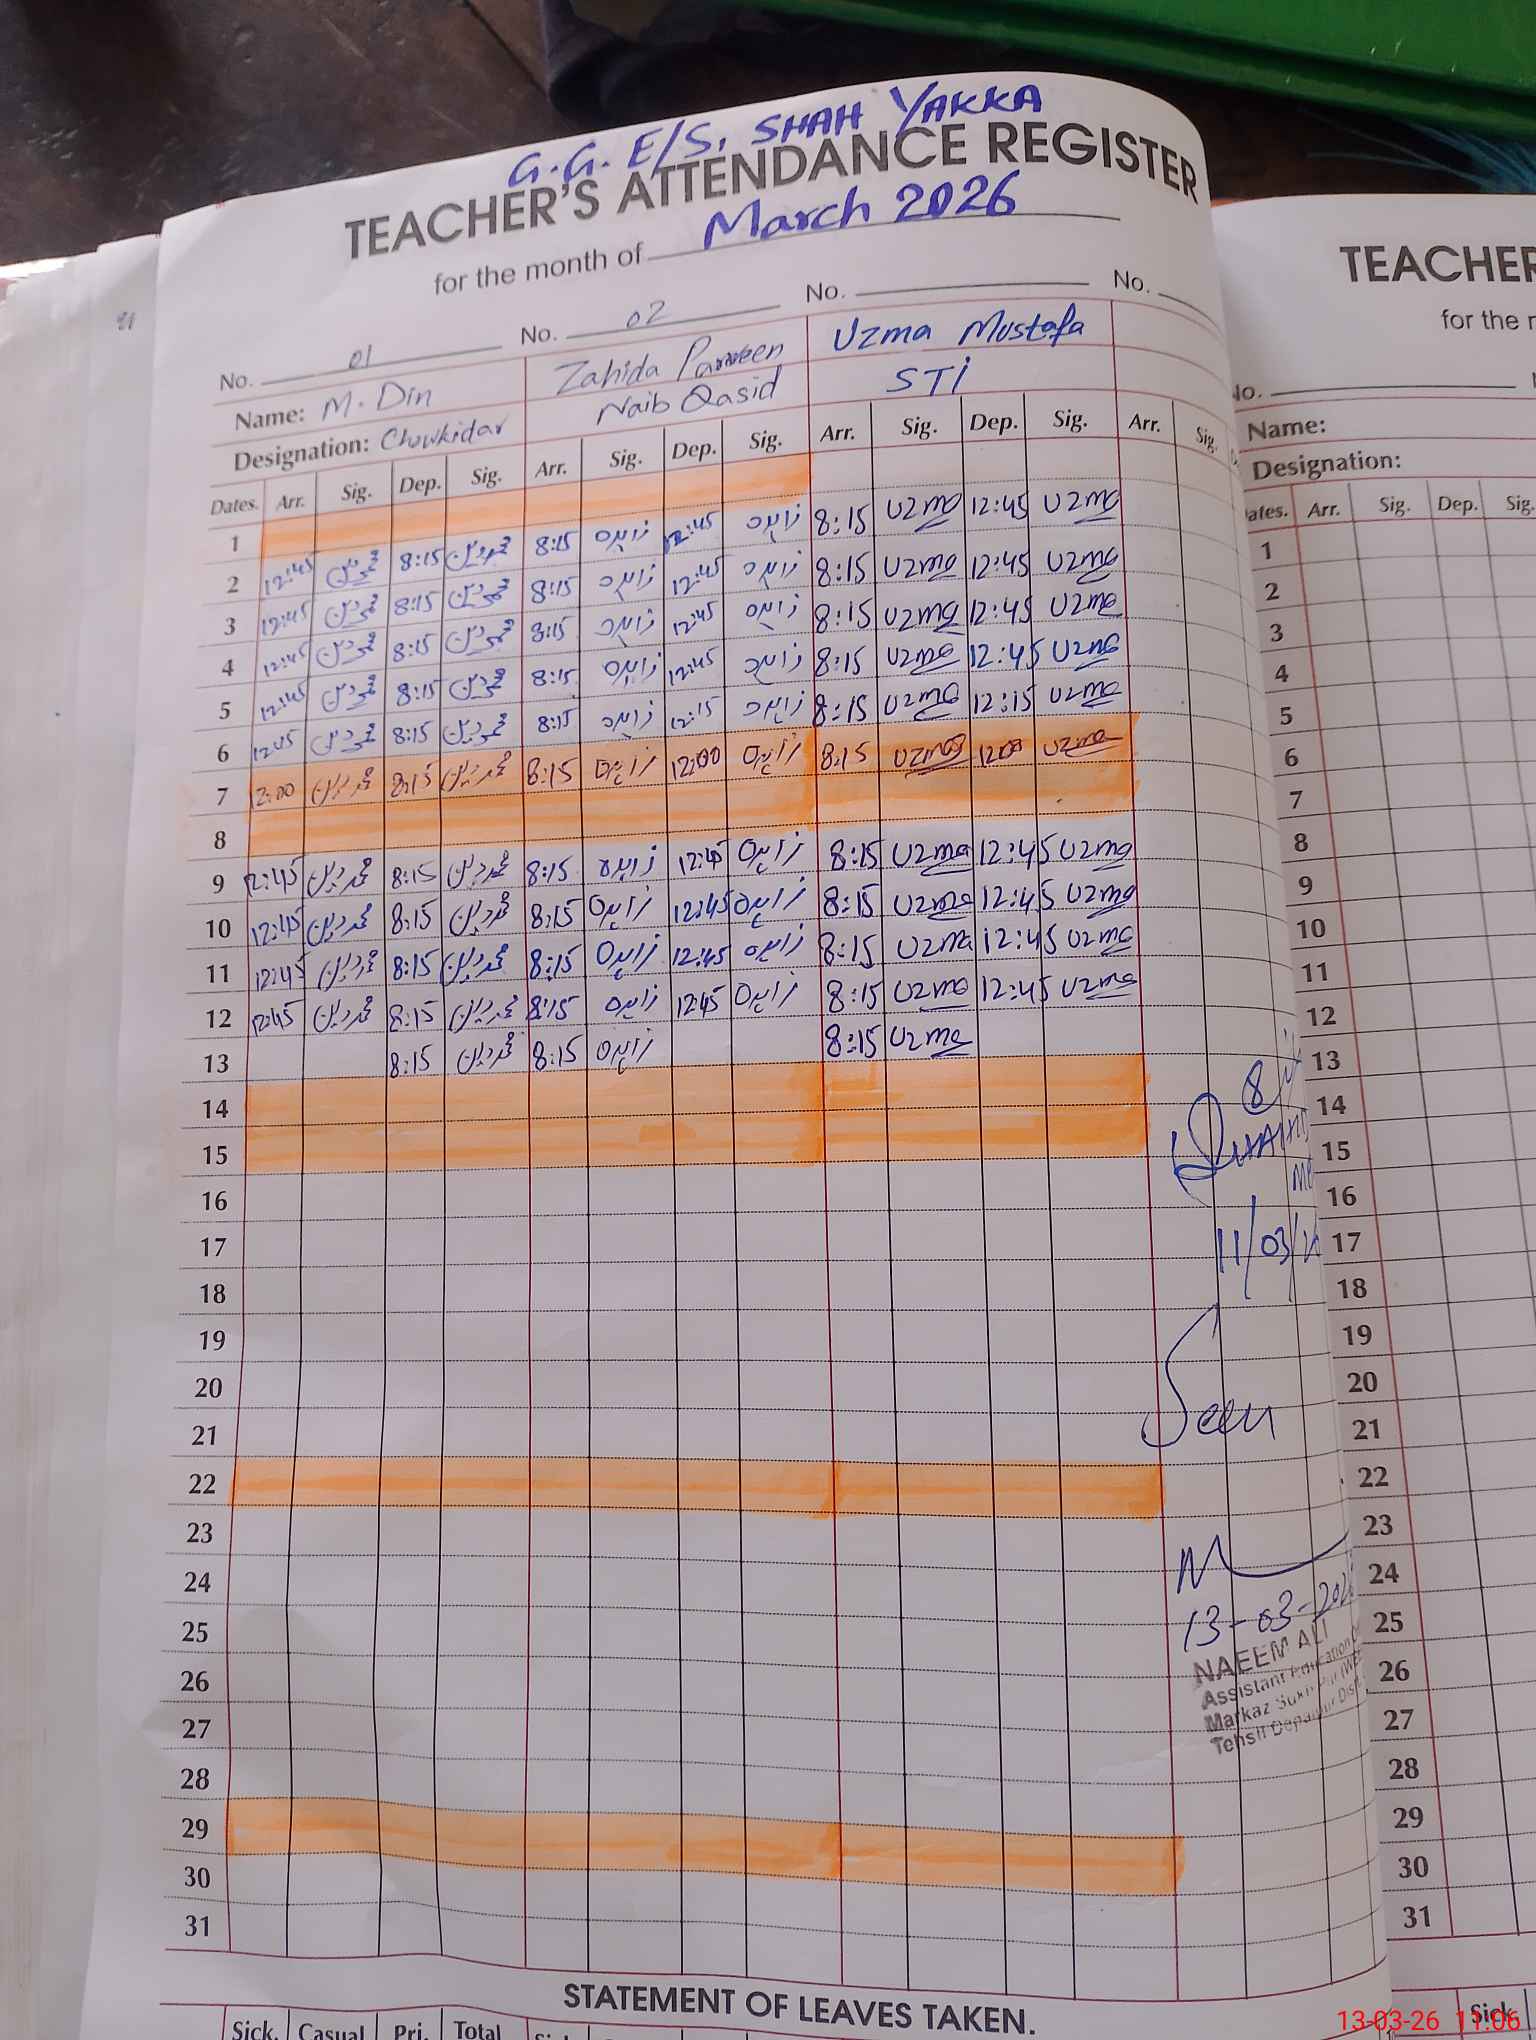 G.G. E/S, SHAH YAKKA
TEACHER'S ATTENDANCE REGISTER
for the month of March 2026
No. 01 No. 02 No. No.
Name: M. Din Zahida Parveen Uzma Mustafa
Designation: Chowkidar Naib Qasid STI
Dates. Arr. Sig. Dep. Sig. Arr. Sig. Dep. Sig. Arr. Sig. Dep. Sig. Arr. Sig.
1
2 12:45 محمد دین 8:15 محمد دین 8:15 زاہدہ 12:45 زاہدہ 8:15 Uzma 12:45 Uzma
3 12:45 محمد دین 8:15 محمد دین 8:15 زاہدہ 12:45 زاہدہ 8:15 Uzma 12:45 Uzma
4 12:45 محمد دین 8:15 محمد دین 8:15 زاہدہ 12:45 زاہدہ 8:15 Uzma 12:45 Uzma
5 12:45 محمد دین 8:15 محمد دین 8:15 زاہدہ 12:45 زاہدہ 8:15 Uzma 12:45 Uzma
6 محمد دین 8:15 محمد دین 8:15 زاہدہ 12:15 زاہدہ 8:15 Uzma 12:15 Uzma
7 12:00 محمد دین 8:15 محمد دین 8:15 زاہدہ 12:00 زاہدہ 8:15 Uzma 1200 Uzma
8
9 12:45 محمد دین 8:15 محمد دین 8:15 زاہدہ 12:45 زاہدہ 8:15 Uzma 12:45 Uzma
10 12:45 محمد دین 8:15 محمد دین 8:15 زاہدہ 12:45 زاہدہ 8:15 Uzma 12:45 Uzma
11 12:45 محمد دین 8:15 محمد دین 8:15 زاہدہ 12:45 زاہدہ 8:15 Uzma 12:45 Uzma
12 12:45 محمد دین 8:15 محمد دین 8:15 زاہدہ 12:45 زاہدہ 8:15 Uzma 12:45 Uzma
13 8:15 محمد دین 8:15 زاہدہ 8:15 Uzma
14
15
16
17
18
19
20
21
22
23
24
25
26
27
28
29
30
31
11/03/
Seen
13-03-202
NAEEM ALI
Assistant Education
Markaz
Tehsil Depalpur Dist
STATEMENT OF LEAVES TAKEN.
Sick. Casual Pri. Total
TEACHER
for the
No.
Name:
Designation:
Dates. Arr. Sig. Dep. Sig.
1
2
3
4
5
6
7
8
9
10
11
12
13
14
15
16
17
18
19
20
21
22
23
24
25
26
27
28
29
30
31
Sick
13-03-26 11:06